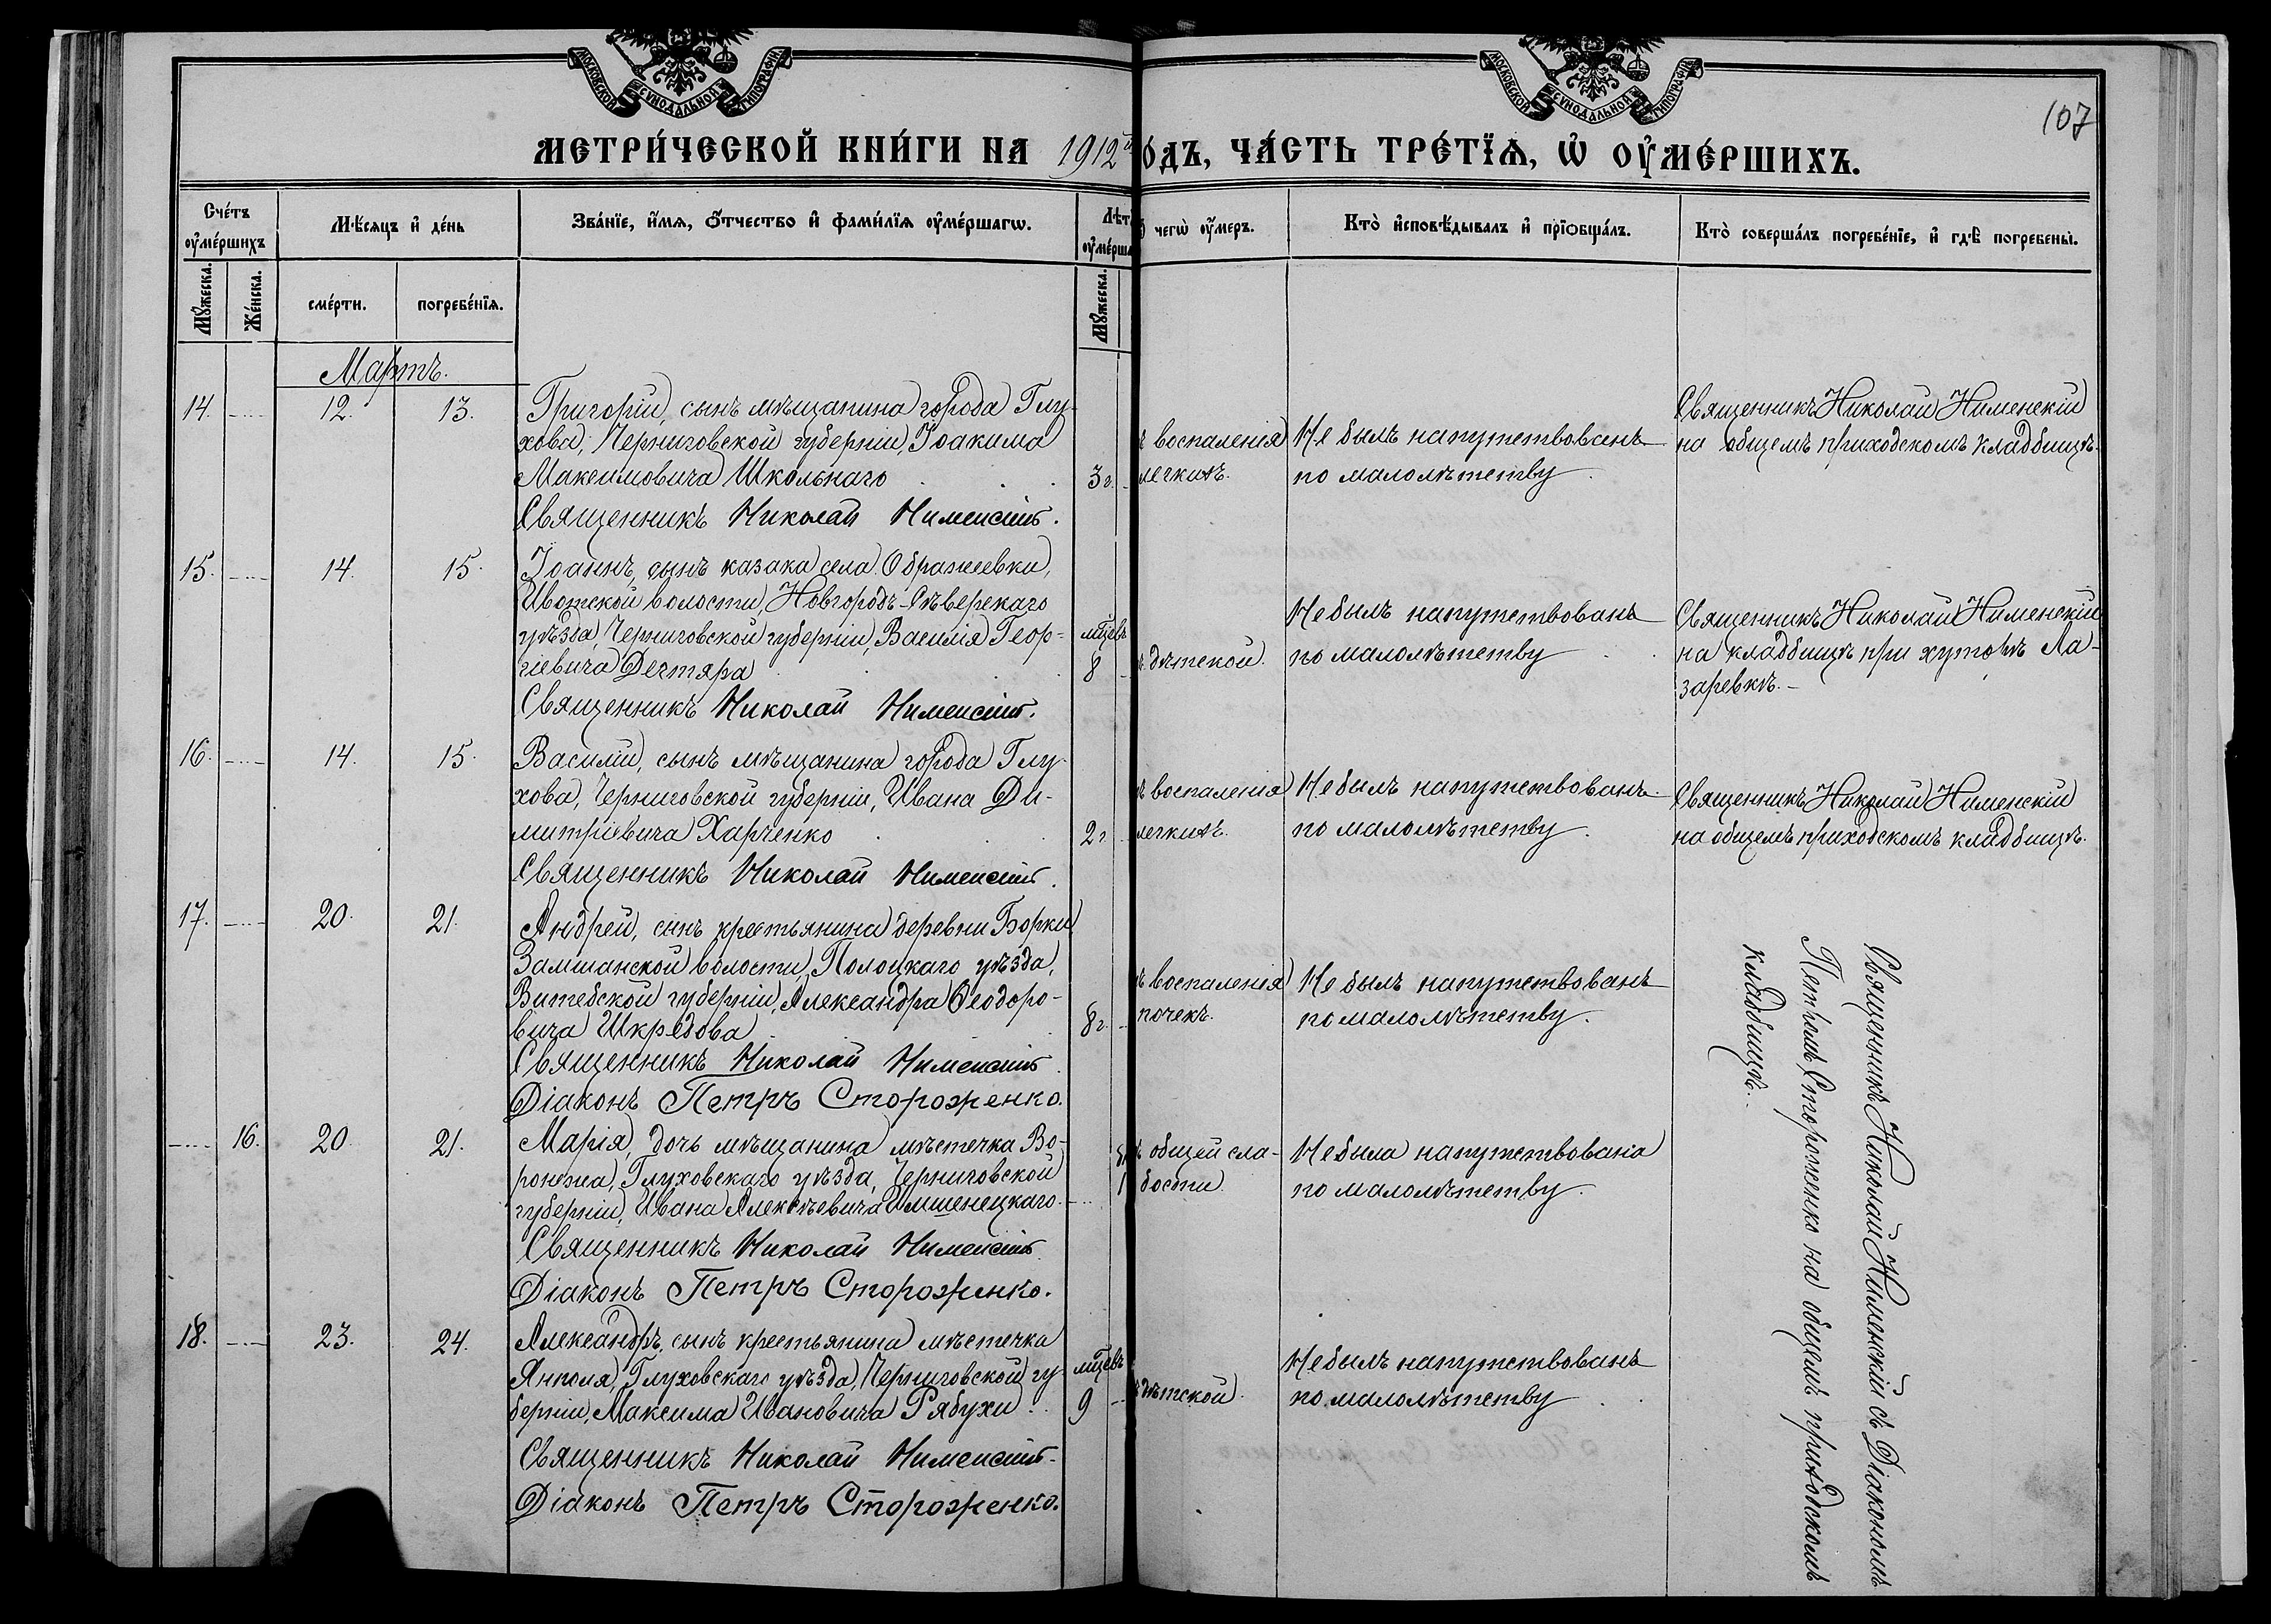 МОСКОВСКОЙ СѴНОДАЛЬНОЙ ТИПОГРАФІИ
МОСКОВСКОЙ СѴНОДАЛЬНОЙ ТИПОГРАФІИ
107
МЕТРИ́ЧЕСКОЙ КНИ́ГИ НА 1912й
ОДЪ, ЧА́СТЬ ТРЕ́ТЇѦ, Ѡ҆ ОУ҆МЕ́РШИХЪ.
Сче́тъ оу҆ме́ршихъ
Мѣ́сяцъ и҆ де́нь
Зва́нїе, и҆́мя, ѻ҆́тчество и҆ фами́лїя оу҆ме́ршагѡ.
Лѣт
оу҆ме́рша
чегѡ̀ оу҆́меръ.
Кто̀ и҆сповѣ́дывалъ и҆ прїѻбща́лъ.
Кто̀ соверша́лъ погребе́нїе, и҆ гдѣ̀ погребены̀.
Мꙋ́жеска.
Же́нска.
сме́рти.
погребе́нїѧ.
Мꙋ́жеска.
Мартъ.
14. 12. 13. Григорій, сынъ мѣщанина города Глу-
хова, Черниговской губерніи, Іоакима
Максимовича Школьнаго 3 г.
Священникъ Николай Нименскій.
воспаленія
легкихъ.
Не былъ напутствованъ
по малолѣтству
Священникъ Николай Нименскій
на общемъ приходскомъ кладбищѣ.
15. 14. 15. Іоаннъ, сынъ казака села Ображеевки,
Ивотской волости, Новгородъ-Сѣверскаго
уѣзда, Черниговской губерніи, Василія Геор-
гіевича Дегтяра мцевъ 8
Священникъ Николай Нименскій.
дѣтской.
Не былъ напутствованъ
по малолѣтству
Священникъ Николай Нименскій
на кладбищѣ при хуторѣ Ла-
заревкѣ.
16. 14. 15. Василій, сынъ мѣщанина города Глу-
хова, Черниговской губерніи, Ивана Ди-
митріевича Харченко 2 г.
Священникъ Николай Нименскій.
воспаленія
легкихъ.
Не былъ напутствованъ
по малолѣтству.
Священникъ Николай Нименскій
на общемъ приходскомъ кладбищѣ.
17. 20. 21. Андрей, сынъ крестьянина деревни Борки,
Замшанской волости, Полоцкаго уѣзда,
Витебской губерніи, Александра Ѳеодоро-
вича Шкредова 8 г.
Священникъ Николай Нименскій.
Діаконъ Петръ Стороженко.
воспаленія
почекъ.
Не былъ напутствованъ
по малолѣтству.
16. 20. 21. Марія, дочь мѣщанина мѣстечка Во-
ронежа, Глуховскаго уѣзда, Черниговской
губерніи, Ивана Алексѣевича Имшенецкаго.
Священникъ Николай Нименскій.
Діаконъ Петръ Стороженко.
общей сла-
бости.
Не была напутствована
по малолѣтству.
18. 23. 24. Александръ, сынъ крестьянина мѣстечка
Янполя, Глуховскаго уѣзда, Черниговской гу-
берніи, Максима Ивановича Рябухи. мцевъ 9
Священникъ Николай Нименскій.
Діаконъ Петръ Стороженко.
дѣтской.
Не былъ напутствованъ
по малолѣтству
Священникъ Николай Нименскій съ Діакономъ
Петромъ Стороженко на общемъ приходскомъ
кладбищѣ.